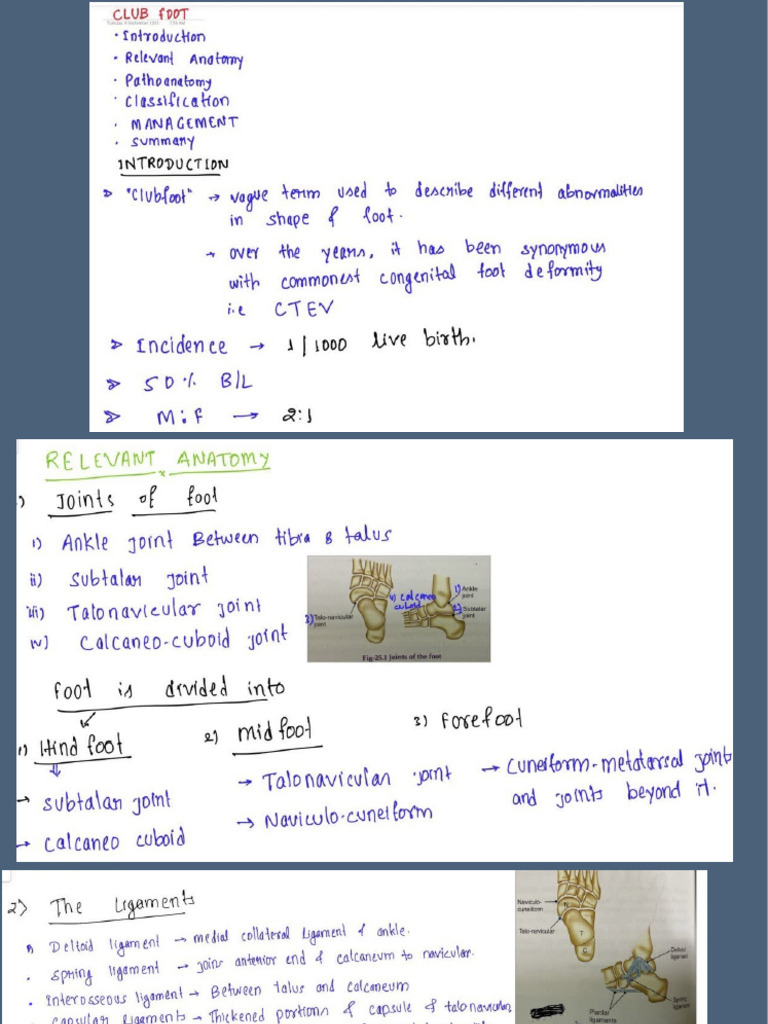 CLUB FOOT
Tuesday, 9 November 1993 7:56 AM
• Introduction
• Relevant Anatomy
• Pathoanatomy
• Classification
• MANAGEMENT
• Summary
INTRODUCTION
"Clubfoot" → vague term used to describe different abnormalities
in shape of foot.
→ over the years, it has been synonymous
with commonest congenital foot deformity
i.e CTEV
Incidence → 1/1000 live birth.
50% B/L
M:F → 2:1
RELEVANT ANATOMY
) Joints of foot
i) Ankle joint Between tibia & talus
ii) Subtalar joint
iii) Talonavicular joint
iv) Calcaneo-cuboid joint
4) Calcaneo
cuboid
1) Ankle
joint
2) Subtalar
joint
3) Talo-navicular
joint
Fig-25.1 Joints of the foot
foot is divided into
1) Hind foot 2) Midfoot 3) Forefoot
→ Subtalar joint
→ Calcaneo cuboid
→ Talonavicular joint
→ Naviculo-cuneiform
→ Cuneiform-metatarsal joint
and joints beyond it.
2) The Ligaments
Deltoid ligament → medial collateral ligament of ankle.
• Spring ligament → joins anterior end of calcaneum to navicular.
• Interosseous ligament → Between talus and calcaneum
• Capsular ligaments → Thickened portions of capsule of talonavicular,
Naviculo-
cuneiform
Talo-navicular
N
T
C
Deltoid
ligament
Spring
ligament
Plantar
ligaments